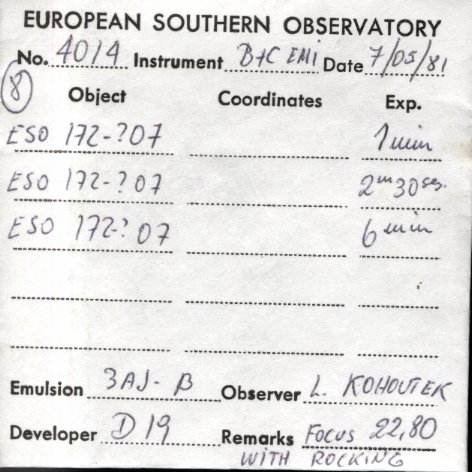 EUROPEAN SOUTHERN OBSERVATORY
No. 4014 Instrument B+C EMI Date 7/05/81
8 Object Coordinates Exp.
ESO 172-?07 1 min
ESO 172-?07 2m 30sec.
ESO 172-?07 6 min
Emulsion 3AJ-B Observer L. KOHOUTEK
Developer D 19 Remarks FOCUS 22,80
WITH ROCKING